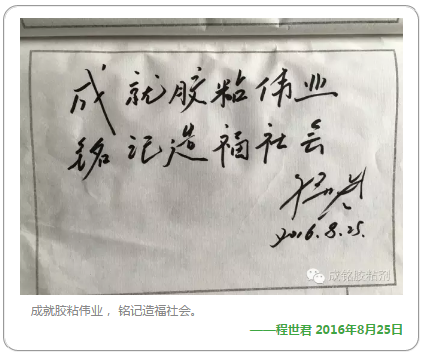 成就胶粘伟业
铭记造福社会
2016.8.25.
成铭胶粘剂
成就胶粘伟业， 铭记造福社会。
——程世君 2016年8月25日